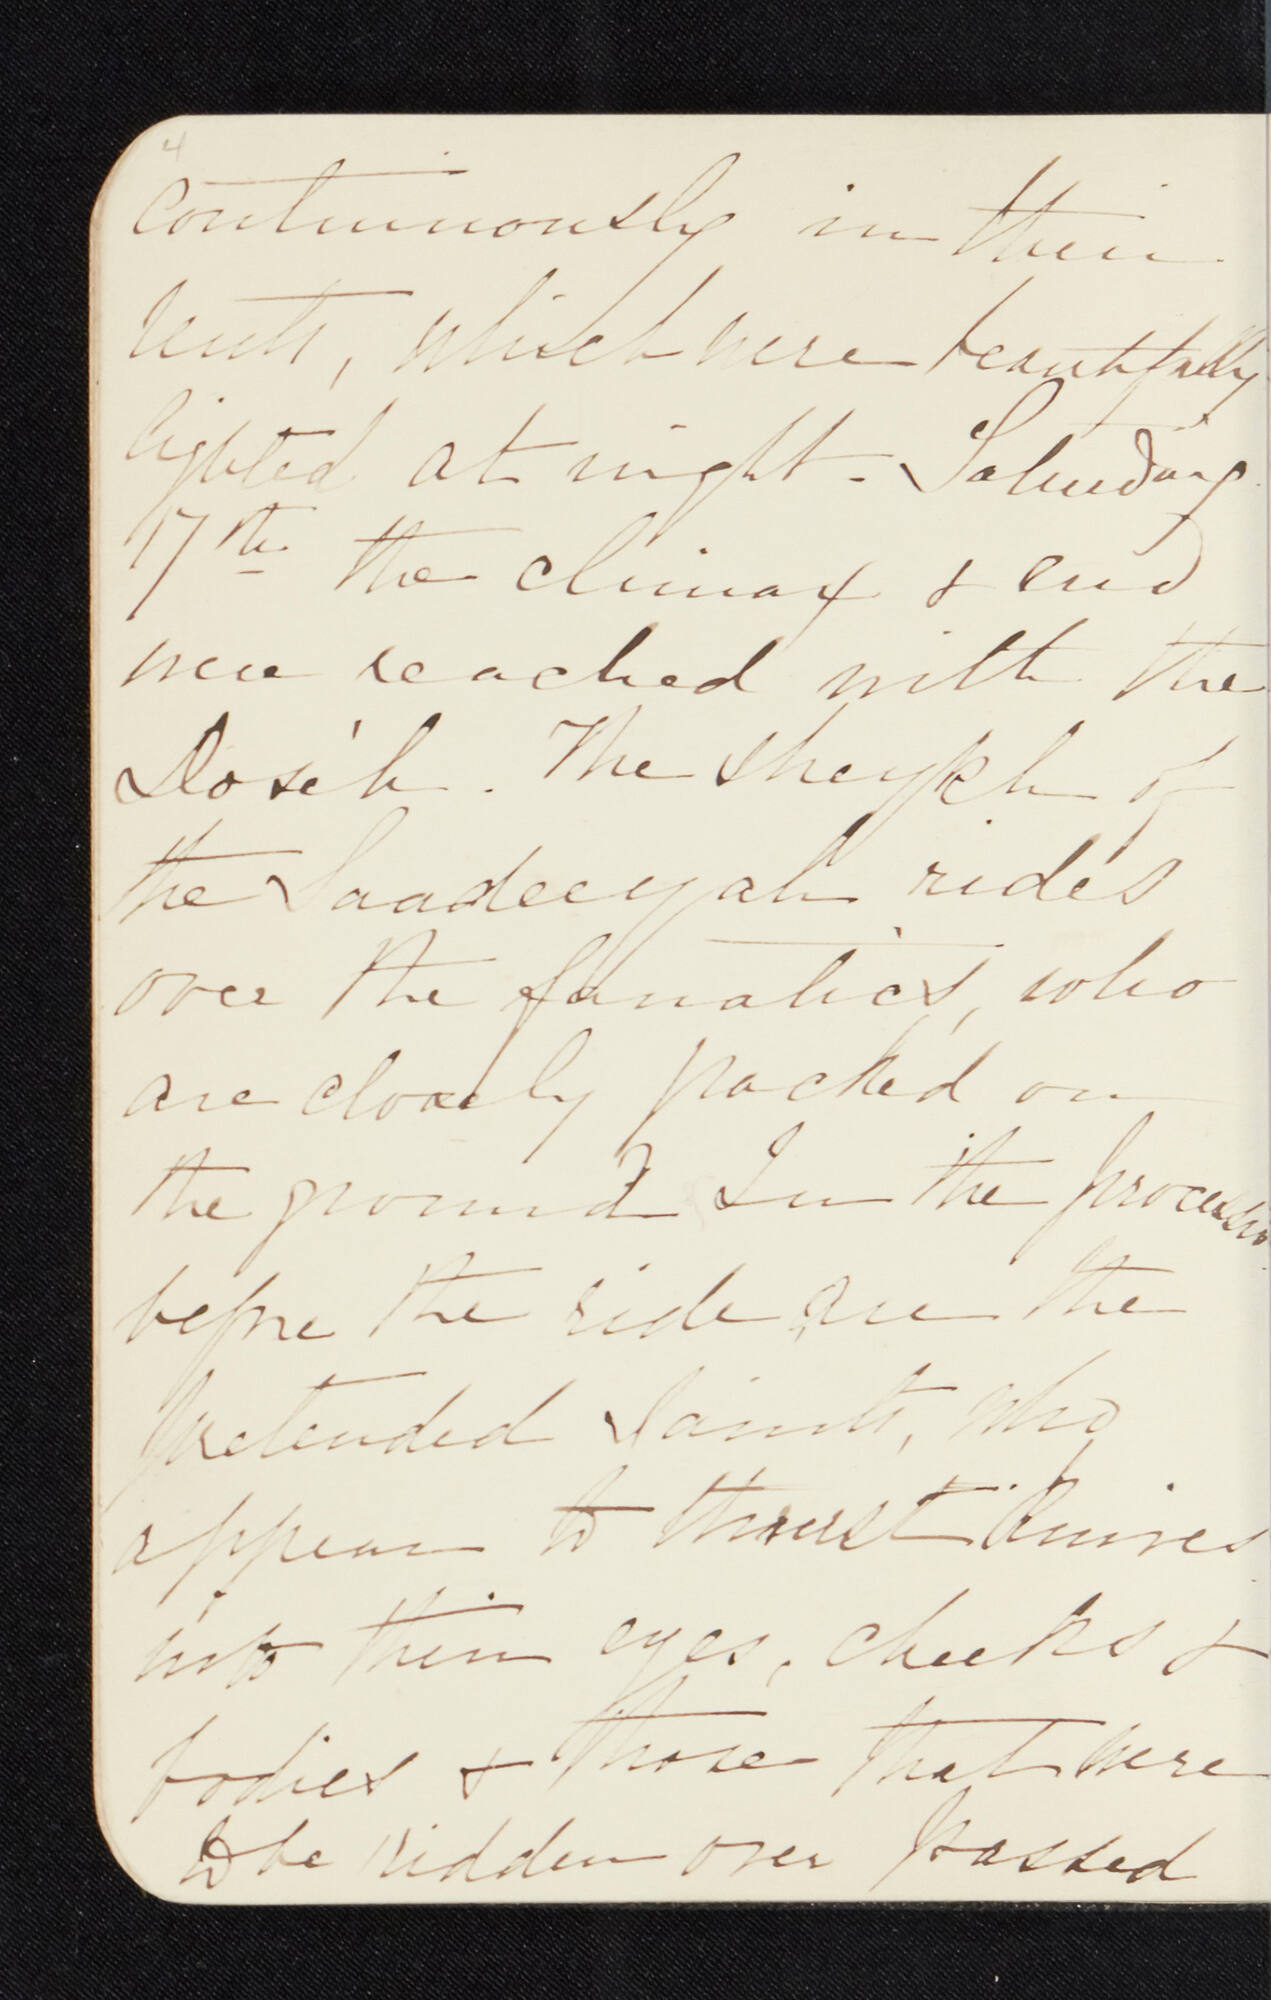 4
continuously in their
tents, which were beautifully
lighted at night. Saturday
17th the climax & end
were reached with the
Doséh. The sheykh of
the Saadeeyah rides
over the fanatics, who
are closely packed on
the ground. In the procession
before the ride are the
pretended Saints, who
appear to thrust knives
into their eyes, cheeks &
bodies & those that were
to be ridden over passed